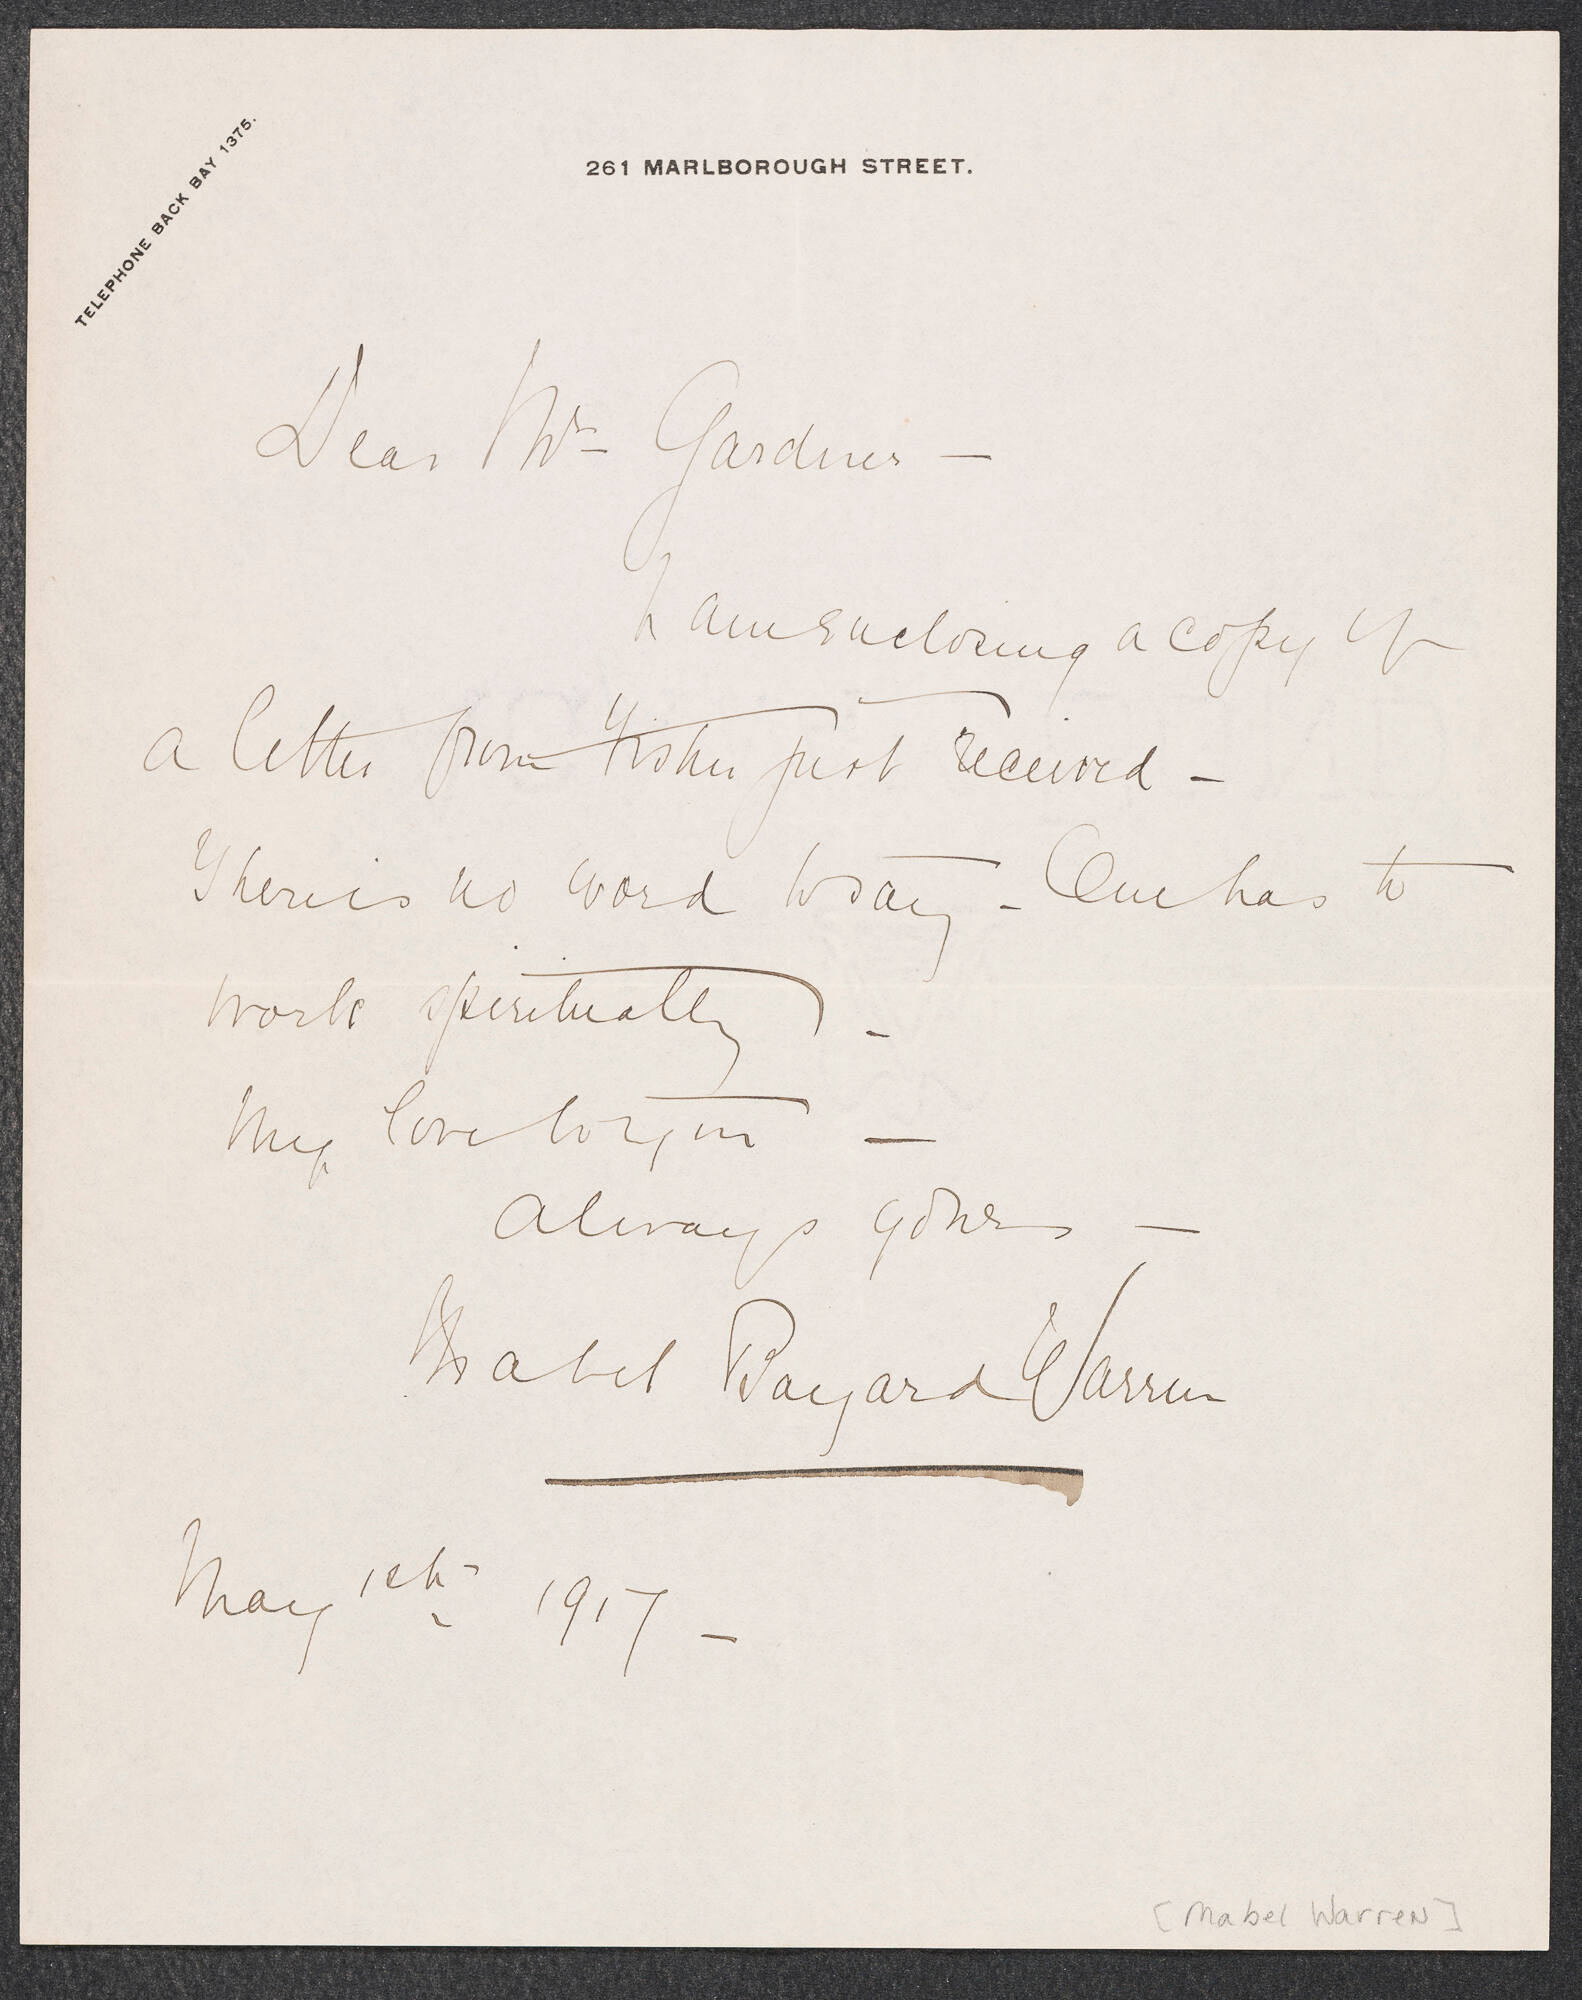 TELEPHONE BACK BAY 1375.
261 MARLBOROUGH STREET.
Dear Mrs Gardner –
I am enclosing a copy of
a letter from Fisher just received –
There is no word today – One has to
work spiritually –
My love to you –
Always yours –
Mabel Bayard Warren
May 1917 –
[Mabel Warren]